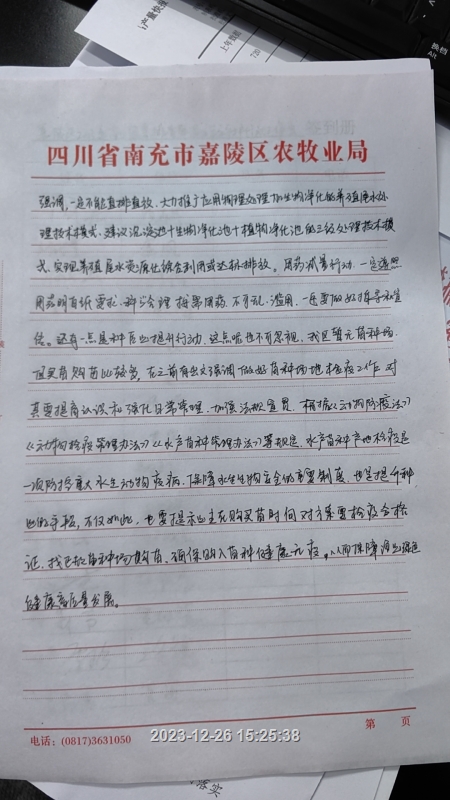 四川省南充市嘉陵区农牧业局
强调，一是不能直排直放，大力推广应用物理处理加生物净化的养殖尾水处
理技术模式，建议沉淀池+生物净化池+植物净化池的三级处理技术模
式，实现养殖尾水资源化综合利用或达标排放。用药减量行动，一定遵照
用药明白纸要求，科学合理指导用药，不可乱、滥用，一定要做好指导和宣
传。还有一点是种质提升行动，这点呢也不可忽视，我区暂无苗种场，
但买苗购苗比较多，在之前有出文强调做好苗种场地检疫工作，对
其要提高认识和强化日常管理，加强法规宣贯，根据《动物防疫法》
《动物检疫管理办法》《水产苗种管理办法》等规定，水产苗种产地检疫是
一项防控重大水生动物疫病，保障水生生物安全的重要制度，也是提升种
业的手段，不仅如此，也要提示业主在购买苗时间对方索要检疫合格
证，找已批苗种场购苗，确保购入苗种健康无疫，从而保障渔业绿色
健康高质量发展。
电话：(0817)3631050
第 页
2023-12-26 15:25:38
换档
Alt
上午
落实